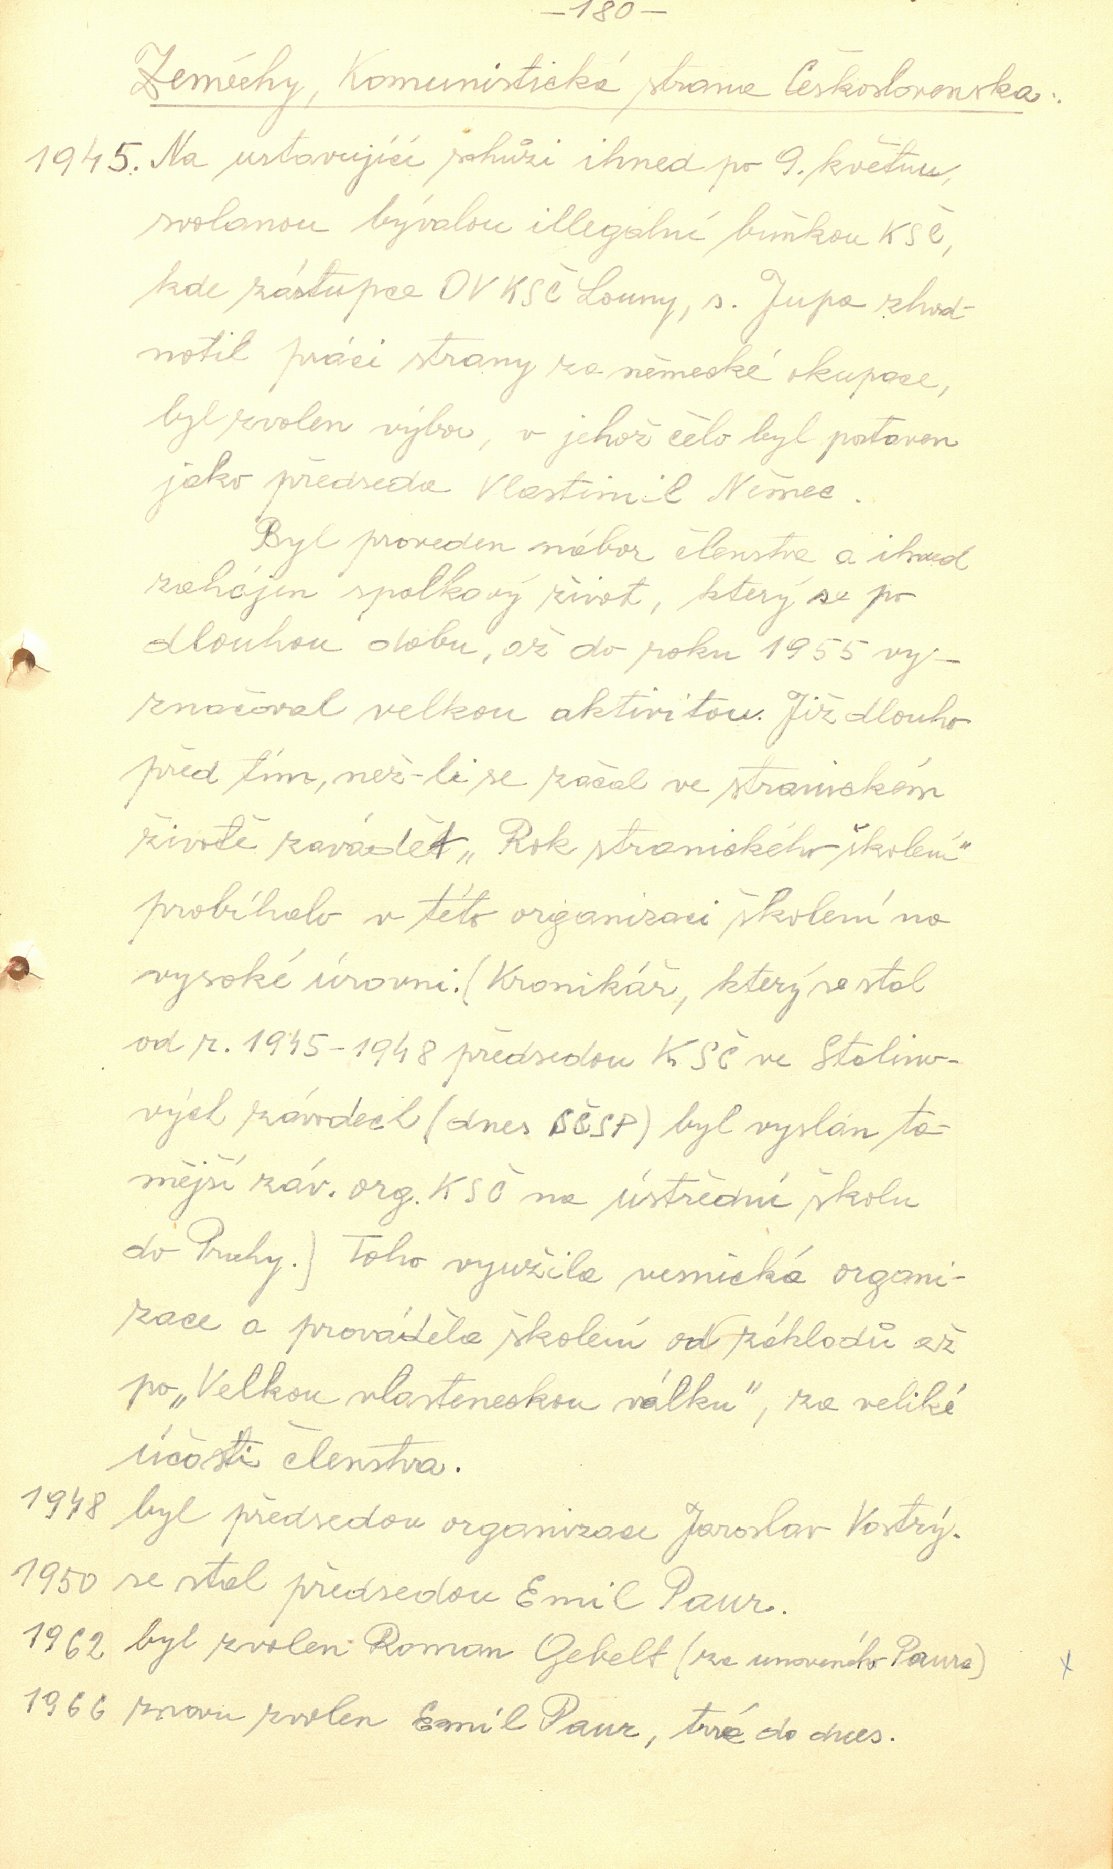 -180-
Zeměchy, Komunistická strana Československa.
1945. Na ustavující schůzi ihned po 9. květnu,
svolanou bývalou illegální buňkou KSČ,
kde zástupce OV KSČ Louny, s. Jupa zhod-
notil práci strany za německé okupace,
byl zvolen výbor, v jehož čelo byl postaven
jako předseda Vlastimil Němec.
Byl proveden nábor členstva a ihned
zahájen spolkový život, který se po
dlouhou dobu, až do roku 1955 vy-
značoval velkou aktivitou. Již dlouho
před tím, než-li se začal ve stranickém
životě zavádět „Rok stranického školení"
probíhalo v této organizaci školení na
vysoké úrovni. (Kronikář, který se stal
od r. 1945-1948 předsedou KSČ ve Stalino-
vých závodech (dnes SČSP) byl vyslán ta-
mější záv. org. KSČ na ústřední školu
do Prahy.) Toho využila vesnická organi-
zace a prováděla školení od základů až
po „Velkou vlasteneskou válku", za veliké
účasti členstva.
1948 byl předsedou organizace Jaroslav Vostrý.
1950 se stal předsedou Emil Paur.
1962 byl zvolen Roman Gebelt (za unaveného Paura) x
1966 znovu zvolen Emil Paur, trvá do dnes.